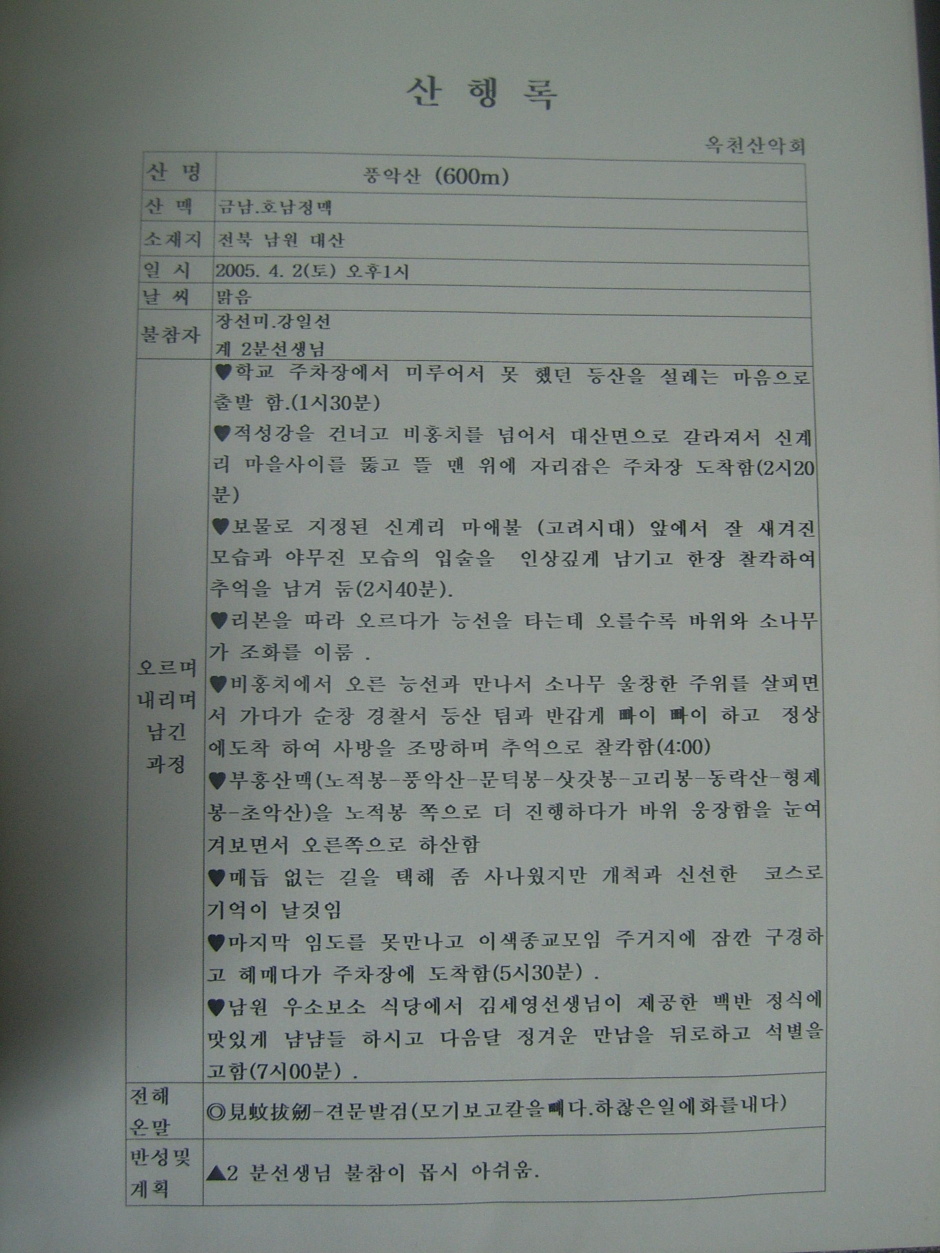 산 행 록
옥천산악회
산 명 풍악산 (600m)
산 맥 금남.호남정맥
소재지 전북 남원 대산
일 시 2005. 4. 2(토) 오후1시
날 씨 맑음
불참자 장선미.강일선
계 2분선생님
오르며
내리며
남긴
과정
♥학교 주차장에서 미루어서 못 했던 등산을 설레는 마음으로
출발 함.(1시30분)
♥적성강을 건너고 비홍치를 넘어서 대산면으로 갈라져서 신계
리 마을사이를 뚫고 뜰 맨 위에 자리잡은 주차장 도착함(2시20
분)
♥보물로 지정된 신계리 마애불 (고려시대) 앞에서 잘 새겨진
모습과 야무진 모습의 입술을 인상깊게 남기고 한장 찰칵하여
추억을 남겨 둠(2시40분).
♥리본을 따라 오르다가 능선을 타는데 오를수록 바위와 소나무
가 조화를 이룸 .
♥비홍치에서 오른 능선과 만나서 소나무 울창한 주위를 살피면
서 가다가 순창 경찰서 등산 팀과 반갑게 빠이 빠이 하고 정상
에도착 하여 사방을 조망하며 추억으로 찰칵함(4:00)
♥부홍산맥(노적봉-풍악산-문덕봉-삿갓봉-고리봉-동락산-형제
봉-초악산)을 노적봉 쪽으로 더 진행하다가 바위 웅장함을 눈여
겨보면서 오른쪽으로 하산함
♥매듭 없는 길을 택해 좀 사나웠지만 개척과 신선한 코스로
기억이 날것임
♥마지막 임도를 못만나고 이색종교모임 주거지에 잠깐 구경하
고 헤매다가 주차장에 도착함(5시30분) .
♥남원 우소보소 식당에서 김세영선생님이 제공한 백반 정식에
맛있게 냠냠들 하시고 다음달 정겨운 만남을 뒤로하고 석별을
고함(7시00분) .
전해
온말
◎見蚊拔劒-견문발검(모기보고칼을빼다.하찮은일에화를내다)
반성및
계획
▲2 분선생님 불참이 몹시 아쉬움.